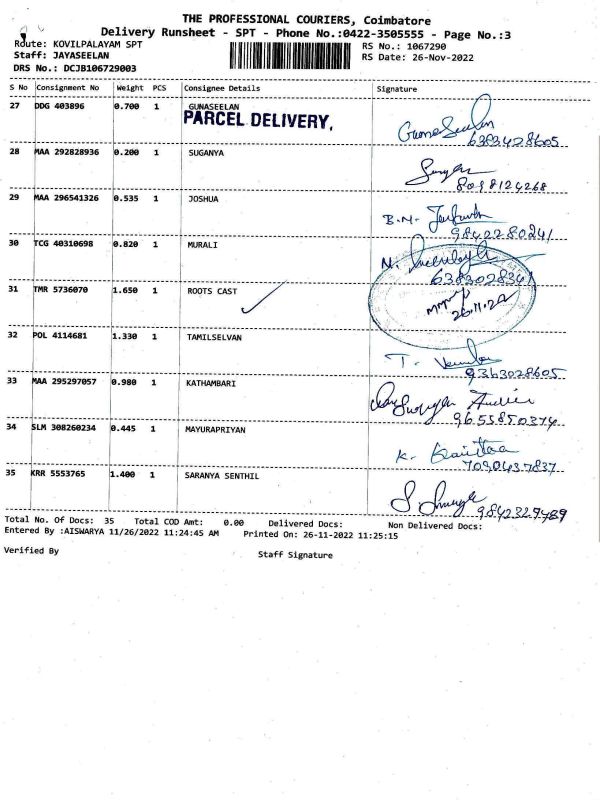 THE PROFESSIONAL COURIERS, Coimbatore
Delivery Runsheet - SPT - Phone No.:0422-3505555 - Page No.:3
Route: KOVILPALAYAM SPT
RS No.: 1067290
Staff: JAYASEELAN
RS Date: 26-Nov-2022
DRS No.: DCJB106729003
S No Consignment No Weight PCS Consignee Details Signature
27 DDG 403896 0.700 1 GUNASEELAN
PARCEL DELIVERY,
GunaSeelan
6383428605
28 MAA 292828936 0.200 1 SUGANYA
8098124268
29 MAA 296541326 0.535 1 JOSHUA
B.N.
9842280241
30 TCG 40310698 0.820 1 MURALI
6383028341
31 TMR 5736070 1.650 1 ROOTS CAST
26.11.22
32 POL 4114681 1.330 1 TAMILSELVAN
T.
9363028605
33 MAA 295297057 0.980 1 KATHAMBARI
9655850374
34 SLM 308260234 0.445 1 MAYURAPRIYAN
K.
7090437837
35 KRR 5553765 1.400 1 SARANYA SENTHIL
9842329789
Total No. Of Docs: 35 Total COD Amt: 0.00 Delivered Docs: Non Delivered Docs:
Entered By :AISWARYA 11/26/2022 11:24:45 AM Printed On: 26-11-2022 11:25:15
Verified By
Staff Signature